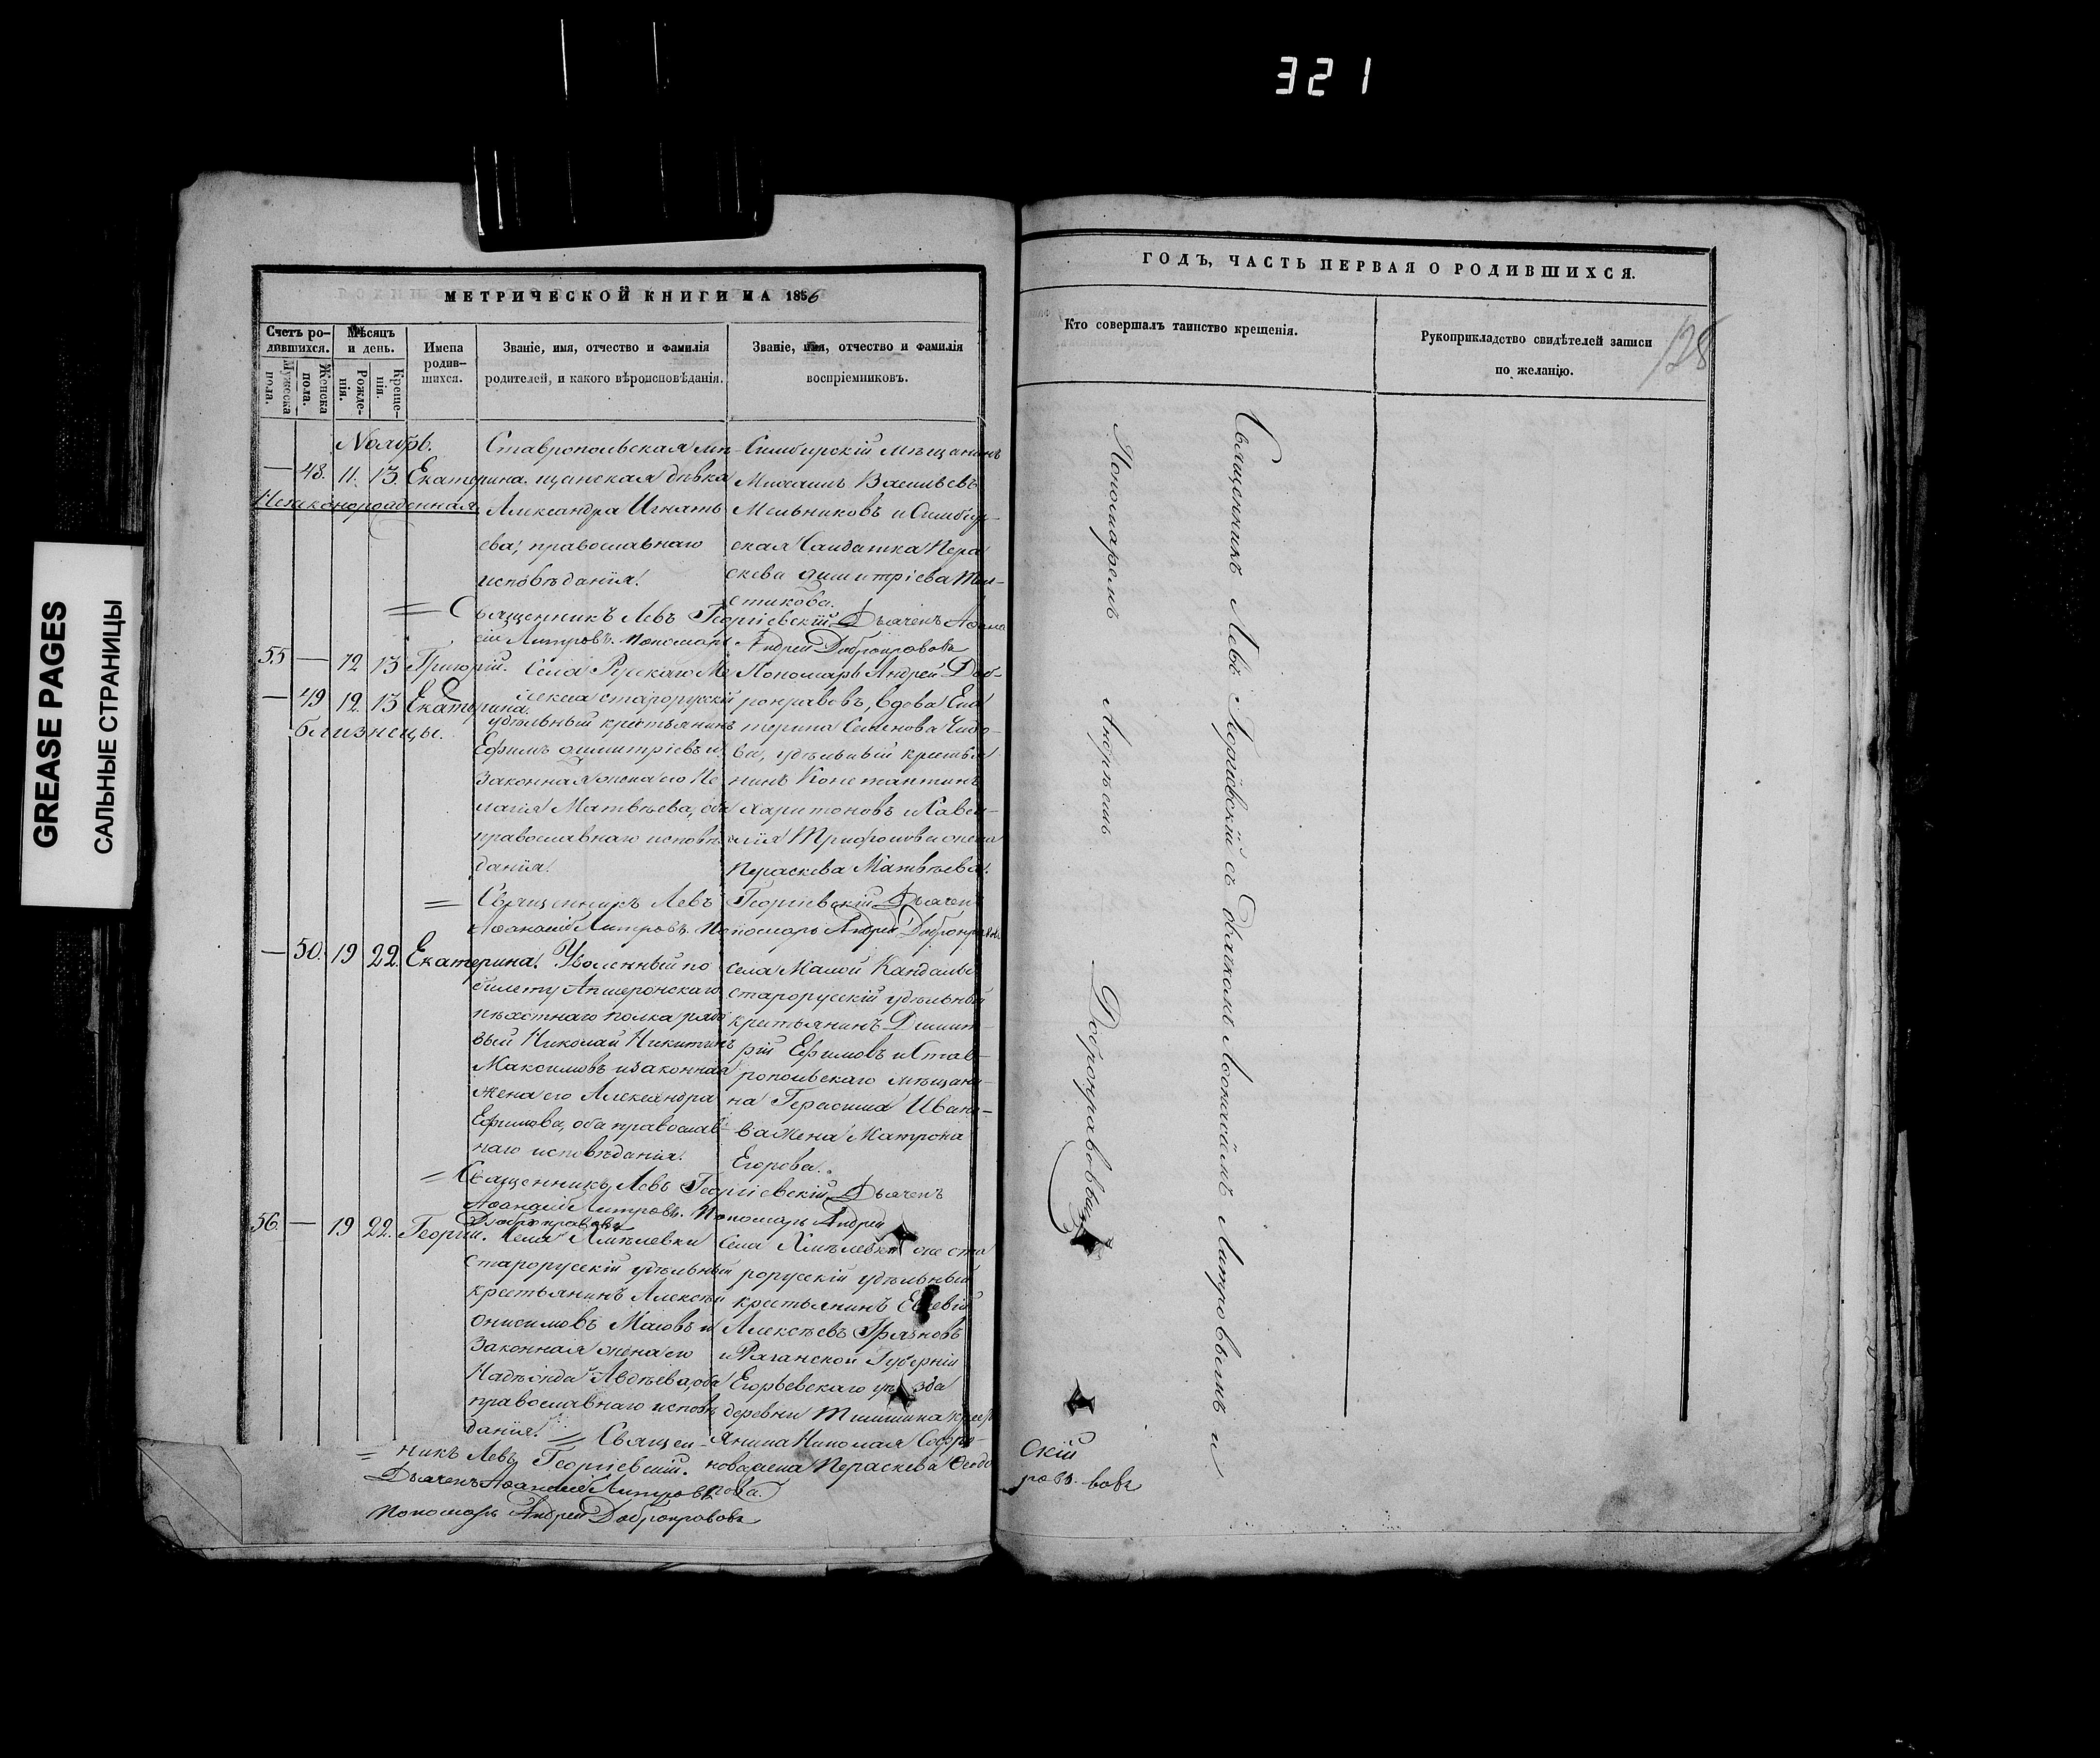 321
GREASE PAGES
САЛЬНЫЕ СТРАНИЦЫ
МЕТРИЧЕСКОЙ КНИГИ НА 1856
Счетъ ро-
дившихся.
Мужеска пола.
Женска пола.
Мѣсяцъ
и день.
Рожде-
нія.
Креще-
нія.
Имена
родив-
шихся.
Званіе, имя, отчество и фамилія
родителей, и какого вѣроисповѣданія.
Званіе, имя, отчество и фамилія
воспріемниковъ.
Ноябрь.
— 48. 11. 13. Екатерина.
Незаконорожденная
Ставропольская мѣ-
щанская дѣвка
Александра Игнать
ева, православнаго
исповѣданія.
Симбирскій мѣщанинъ
Михаилъ Васильевъ
Мельниковъ и Симбир-
ская Солдатка Пера
скева Димитріева
стикова.
= Священникъ Левъ Георгіевскій. Дьяченъ Афана
сій Литровъ. Пономарь Андрей Добронравовъ
55 — 12 13 Григорій.
— 49 12. 13 Екатерина.
близнецы.
Села Рускаго Ме
лекеса старорускій
удѣльный крестьянинъ
Ефимъ Димитріевъ и
законная жена его Пе
лагія Матвѣева, оба
православнаго исповѣ
данія.
Пономарь Андрей Доб-
ронравовъ, вдова Ека
терина Семенова
ва, удѣльный крестья
нинъ Константинъ
Харитоновъ и
Трифонова жена
Пераскева Матвѣева.
= Священникъ Левъ Георгіевскій Дьяченъ
Афанасій Литровъ. Пономарь Андрей Добронравовъ
— 50. 19 22. Екатерина.
Уволенный по
билету Апшеронскаго
пѣхотнаго полка рядо
вый Николай Никитинъ
Максимовъ и законная
жена его Александра
Ефимова, оба православ-
наго исповѣданія.
села Малой Кандалы
старорускій удѣльный
крестьянинъ Димит-
рій Ефимовъ и Став-
ропольскаго мѣщани-
на Герасима Ивано-
ва жена Матрона
Егорова.
= Священникъ Левъ Георгіевскій Дьяченъ
Афанасій Литровъ. Пономарь Андрей
Добронравовъ
56. — 19 22. Георгій.
Села Хмѣлевки
старорускій удѣльный
крестьянинъ Алексѣй
Онисимовъ и
законная жена его
Надежда Авдѣева, оба
православнаго исповѣ
данія.
Села Хмѣлевки же ста
рорускій удѣльный
крестьянинъ
Алексѣевъ Грязновъ
и Рязанской Губерніи
Егорьевскаго уѣзда
деревни крест
янина Николая Софро-
нова жена Пераскева Ѳеодо
рова.
= Священ-
никъ Левъ Георгіевскій.
Дьяченъ Афанасій Литровъ
Пономарь Андрей Добронравовъ
ГОДЪ, ЧАСТЬ ПЕРВАЯ О РОДИВШИХСЯ.
Кто совершалъ таинство крещенія.
Рукоприкладство свидѣтелей записи
по желанію.
128
Священникъ Левъ Георгіевскій съ Дьячкомъ Афонасіемъ Литровымъ и
Пономаремъ Андрѣемъ Добронравовымъ
скій
ровъ. вовъ